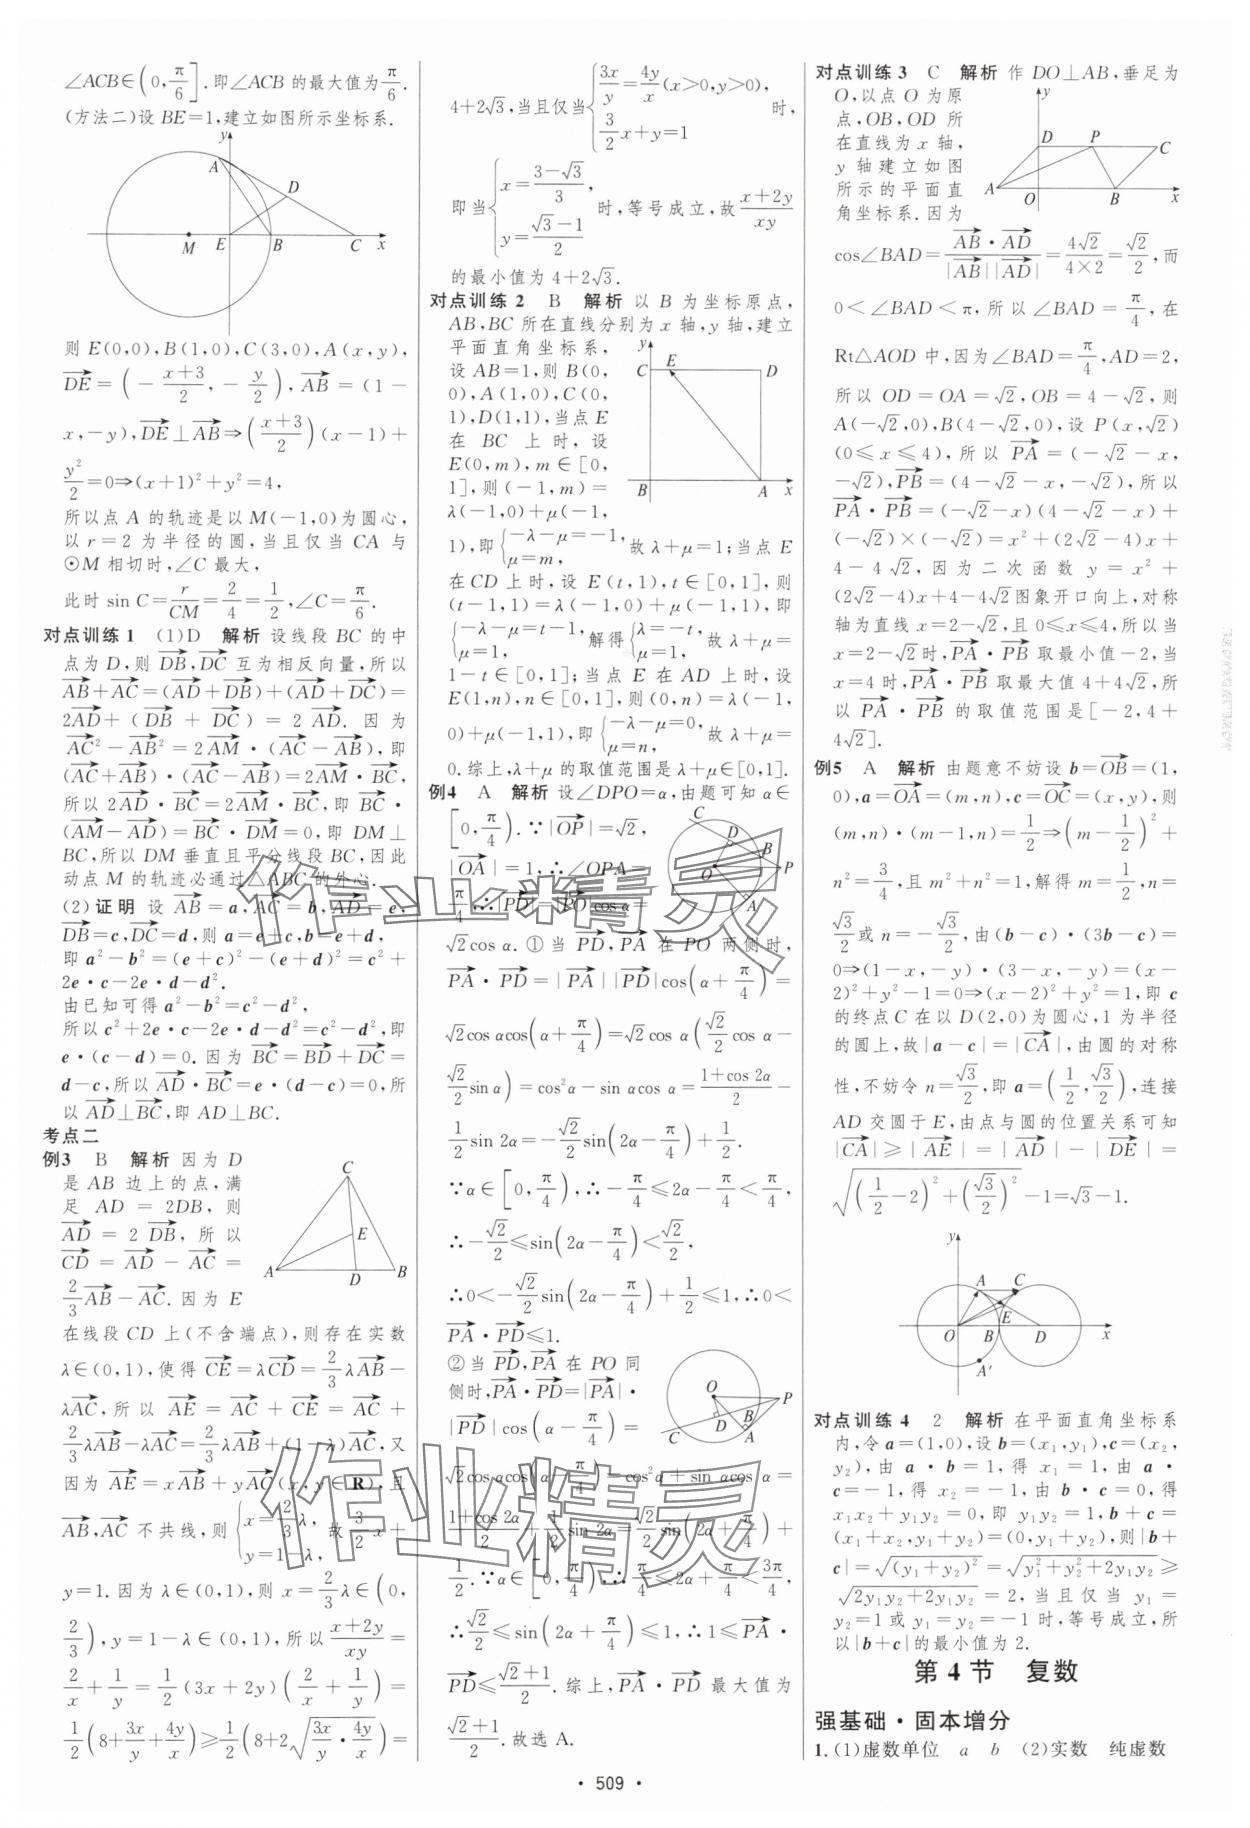 ∠ACB∈(0,π/6].即∠ACB的最大值为π/6.
(方法二)设BE=1,建立如图所示坐标系.
y
A
D
M
E
B
C
x
则E(0,0),B(1,0),C(3,0),A(x,y),
DE→=(-(x+3)/2,-y/2),AB→=(1-
x,-y),DE→⊥AB→⇒((x+3)/2)(x-1)+
y²/2=0⇒(x+1)²+y²=4,
所以点A的轨迹是以M(-1,0)为圆心,
以r=2为半径的圆,当且仅当CA与
⊙M相切时,∠C最大,
此时sin C=r/CM=2/4=1/2,∠C=π/6.
对点训练1 (1)D 解析 设线段BC的中
点为D,则DB→,DC→互为相反向量,所以
AB→+AC→=(AD→+DB→)+(AD→+DC→)=
2AD→+(DB→+DC→)=2AD→.因为
AC→²-AB→²=2AM→·(AC→-AB→),即
(AC→+AB→)·(AC→-AB→)=2AM→·BC→,
所以2AD→·BC→=2AM→·BC→,即BC→·
(AM→-AD→)=BC→·DM→=0,即DM⊥
BC,所以DM垂直且平分线段BC,因此
动点M的轨迹必通过△ABC的外心.
(2)证明 设AB→=a,AC→=b,AD→=e,
DB→=c,DC→=d,则a=e+c,b=e+d,
即a²-b²=(e+c)²-(e+d)²=c²+
2e·c-2e·d-d².
由已知可得a²-b²=c²-d²,
所以c²+2e·c-2e·d-d²=c²-d²,即
e·(c-d)=0.因为BC→=BD→+DC→=
d-c,所以AD→·BC→=e·(d-c)=0,所
以AD→⊥BC→,即AD⊥BC.
考点二
例3 B 解析 因为D
是AB边上的点,满
足AD=2DB,则
AD→=2DB→,所以
CD→=AD→-AC→=
2/3AB→-AC→.因为E
C
E
A
D
B
在线段CD上(不含端点),则存在实数
λ∈(0,1),使得CE→=λCD→=2/3λAB→-
λAC→,所以AE→=AC→+CE→=AC→+
2/3λAB→-λAC→=2/3λAB→+(1-λ)AC→,又
因为AE→=xAB→+yAC→(x,y∈R),且
AB→,AC→不共线,则{x=2/3λ, y=1-λ, 故3/2x+
y=1.因为λ∈(0,1),则x=2/3λ∈(0,
2/3),y=1-λ∈(0,1),所以(x+2y)/xy=
2/x+1/y=1/2(3x+2y)(2/x+1/y)=
1/2(8+3x/y+4y/x)≥1/2(8+2√(3x/y·4y/x))=
4+2√3,当且仅当{3x/y=4y/x(x>0,y>0), 3/2x+y=1 时,
即当{x=(3-√3)/3, y=(√3-1)/2 时,等号成立,故(x+2y)/xy
的最小值为4+2√3.
对点训练2 B 解析 以B为坐标原点,
AB,BC所在直线分别为x轴,y轴,建立
平面直角坐标系,
设AB=1,则B(0,
0),A(1,0),C(0,
1),D(1,1),当点E
在BC上时,设
E(0,m),m∈[0,
1],则(-1,m)=
λ(-1,0)+μ(-1,
y
C
E
D
B
A
x
1),即{-λ-μ=-1, μ=m, 故λ+μ=1;当点E
在CD上时,设E(t,1),t∈[0,1],则
(t-1,1)=λ(-1,0)+μ(-1,1),即
{-λ-μ=t-1, μ=1, 解得{λ=-t, μ=1, 故λ+μ=
1-t∈[0,1];当点E在AD上时,设
E(1,n),n∈[0,1],则(0,n)=λ(-1,
0)+μ(-1,1),即{-λ-μ=0, μ=n, 故λ+μ=
0.综上,λ+μ的取值范围是λ+μ∈[0,1].
例4 A 解析 设∠DPO=α,由题可知α∈
[0,π/4).∵|OP→|=√2,
|OA→|=1,∴∠OPA=
π/4,∴|PD→|=PO cos α=
C
D
B
O
P
A
√2cos α.①当PD→,PA→在PO两侧时,
PA→·PD→=|PA→||PD→|cos(α+π/4)=
√2cos αcos(α+π/4)=√2cos α(√2/2cos α-
√2/2sin α)=cos²α-sin αcos α=(1+cos 2α)/2-
1/2sin 2α=-√2/2sin(2α-π/4)+1/2.
∵α∈[0,π/4),∴-π/4≤2α-π/4<π/4,
∴-√2/2≤sin(2α-π/4)<√2/2,
∴0<-√2/2sin(2α-π/4)+1/2≤1,∴0<
PA→·PD→≤1.
②当PD→,PA→在PO同
侧时,PA→·PD→=|PA→|·
|PD→|cos(α-π/4)=
O
P
D
B
C
A
√2cos αcos(α-π/4)=cos²α+sin αcos α=
(1+cos 2α)/2+1/2sin 2α=√2/2sin(2α+π/4)+
1/2.∵α∈[0,π/4),∴π/4≤2α+π/4<3π/4,
∴√2/2≤sin(2α+π/4)≤1,∴1≤PA→·
PD→≤(√2+1)/2.综上,PA→·PD→最大值为
(√2+1)/2.故选A.
对点训练3 C 解析 作DO⊥AB,垂足为
O,以点O为原
点,OB,OD所
在直线为x轴,
y轴建立如图
所示的平面直
角坐标系.因为
y
D
P
C
A
O
B
x
cos∠BAD=AB→·AD→/(|AB→||AD→|)=4√2/(4×2)=√2/2,而
0<∠BAD<π,所以∠BAD=π/4,在
Rt△AOD中,因为∠BAD=π/4,AD=2,
所以OD=OA=√2,OB=4-√2,则
A(-√2,0),B(4-√2,0),设P(x,√2)
(0≤x≤4),所以PA→=(-√2-x,
-√2),PB→=(4-√2-x,-√2),所以
PA→·PB→=(-√2-x)(4-√2-x)+
(-√2)×(-√2)=x²+(2√2-4)x+
4-4√2,因为二次函数y=x²+
(2√2-4)x+4-4√2图象开口向上,对称
轴为直线x=2-√2,且0≤x≤4,所以当
x=2-√2时,PA→·PB→取最小值-2,当
x=4时,PA→·PB→取最大值4+4√2,所
以PA→·PB→的取值范围是[-2,4+
4√2].
例5 A 解析 由题意不妨设b=OB→=(1,
0),a=OA→=(m,n),c=OC→=(x,y),则
(m,n)·(m-1,n)=1/2⇒(m-1/2)²+
n²=3/4,且m²+n²=1,解得m=1/2,n=
√3/2或n=-√3/2,由(b-c)·(3b-c)=
0⇒(1-x,-y)·(3-x,-y)=(x-
2)²+y²-1=0⇒(x-2)²+y²=1,即c
的终点C在以D(2,0)为圆心,1为半径
的圆上,故|a-c|=|CA→|,由圆的对称
性,不妨令n=√3/2,即a=(1/2,√3/2),连接
AD交圆于E,由点与圆的位置关系可知
|CA→|≥|AE→|=|AD→|-|DE→|=
√((1/2-2)²+(√3/2)²)-1=√3-1.
y
A
C
E
O
B
D
x
A′
对点训练4 2 解析 在平面直角坐标系
内,令a=(1,0),设b=(x₁,y₁),c=(x₂,
y₂),由a·b=1,得x₁=1,由a·
c=-1,得x₂=-1,由b·c=0,得
x₁x₂+y₁y₂=0,即y₁y₂=1,b+c=
(x₁+x₂,y₁+y₂)=(0,y₁+y₂),则|b+
c|=√((y₁+y₂)²)=√(y₁²+y₂²+2y₁y₂)≥
√(2y₁y₂+2y₁y₂)=2,当且仅当y₁=
y₂=1或y₁=y₂=-1时,等号成立,所
以|b+c|的最小值为2.
第4节 复数
强基础·固本增分
1.(1)虚数单位 a b (2)实数 纯虚数
作业精灵
作业精灵
·509·